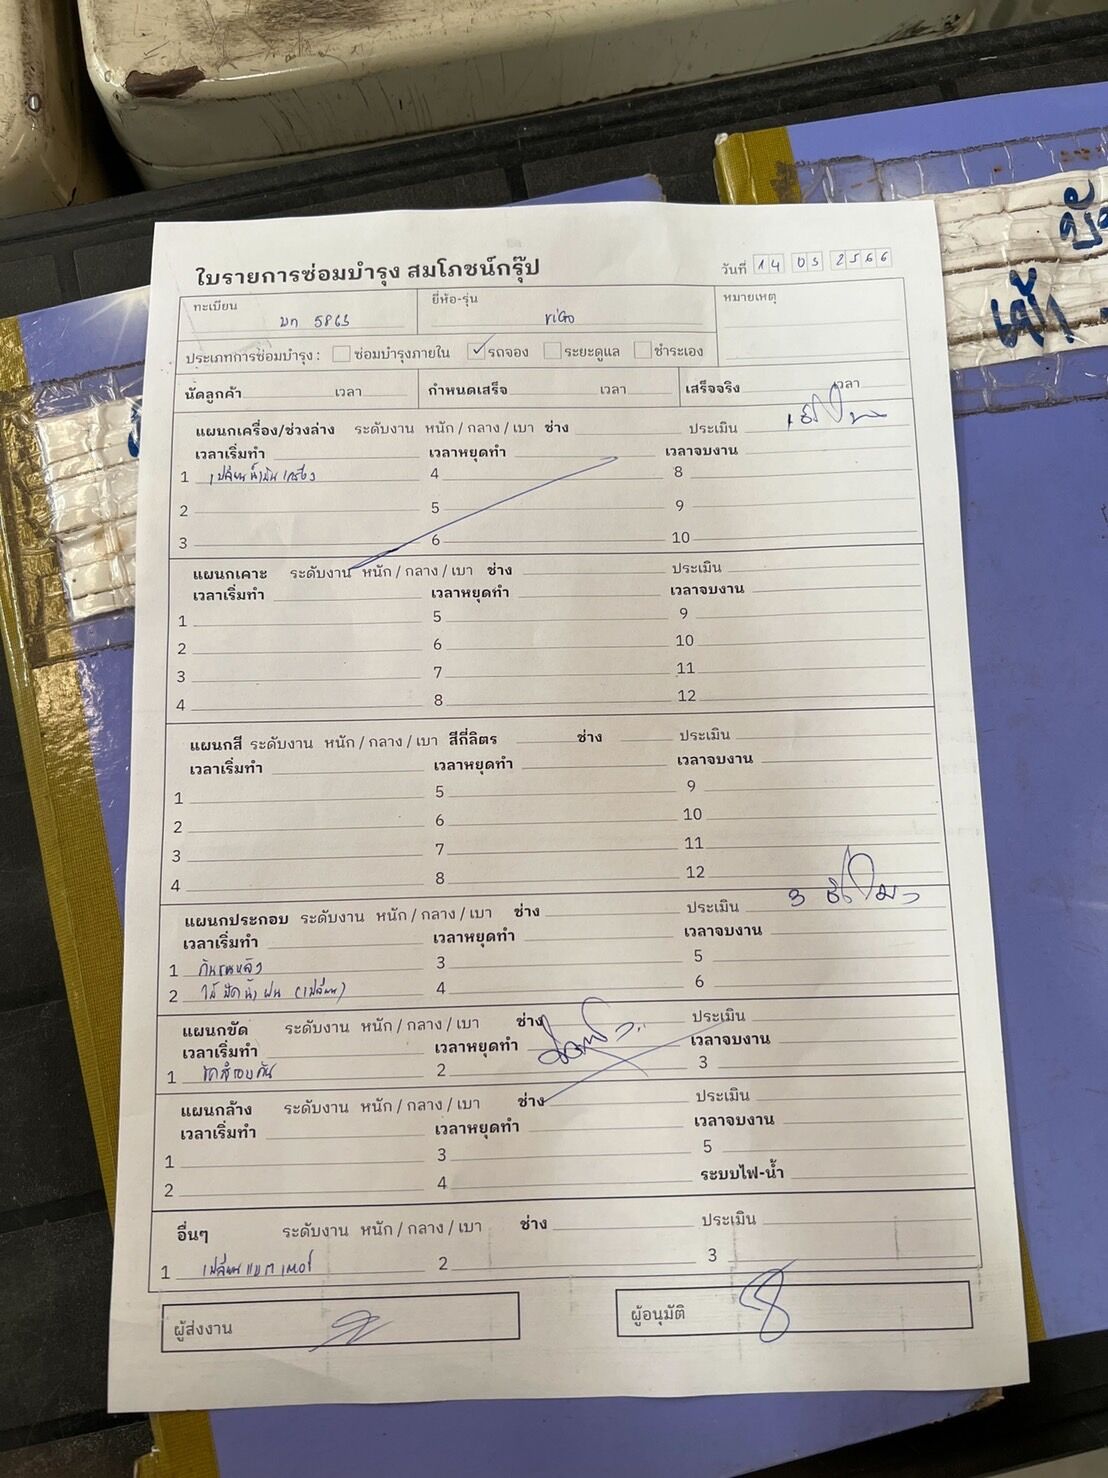 ใบรายการซ่อมบำรุง สมโภชน์กรุ๊ป
วันที่ 14 03 2566
ทะเบียน 5863
ยี่ห้อ-รุ่น ViGo
หมายเหตุ
ประเภทการซ่อมบำรุง : ซ่อมบำรุงภายใน รถจอง ระยะดูแล ชำระเอง
นัดลูกค้า เวลา กำหนดเสร็จ เวลา เสร็จจริง เวลา
แผนกเครื่อง/ช่วงล่าง ระดับงาน หนัก / กลาง / เบา ช่าง ประเมิน
เวลาเริ่มทำ เวลาหยุดทำ เวลาจบงาน
1 เปลี่ยนน้ำมันเครื่อง 4 8
2 5 9
3 6 10
แผนกเคาะ ระดับงาน หนัก / กลาง / เบา ช่าง ประเมิน
เวลาเริ่มทำ เวลาหยุดทำ เวลาจบงาน
1 5 9
2 6 10
3 7 11
4 8 12
แผนกสี ระดับงาน หนัก / กลาง / เบา สีกี่ลิตร ช่าง ประเมิน
เวลาเริ่มทำ เวลาหยุดทำ เวลาจบงาน
1 5 9
2 6 10
3 7 11
4 8 12
แผนกประกอบ ระดับงาน หนัก / กลาง / เบา ช่าง ประเมิน 3 ชั่วโมง
เวลาเริ่มทำ เวลาหยุดทำ เวลาจบงาน
1 กันชนหลัง 3 5
2 ใบปัดน้ำฝน (เปลี่ยน) 4 6
แผนกขัด ระดับงาน หนัก / กลาง / เบา ช่าง ประเมิน
เวลาเริ่มทำ เวลาหยุดทำ เวลาจบงาน
1 ขัดสีรอบคัน 2 3
แผนกล้าง ระดับงาน หนัก / กลาง / เบา ช่าง ประเมิน
เวลาเริ่มทำ เวลาหยุดทำ เวลาจบงาน
1 3 5
2 4 ระบบไฟ-น้ำ
อื่นๆ ระดับงาน หนัก / กลาง / เบา ช่าง ประเมิน
1 เปลี่ยนแบตเตอรี่ 2 3
ผู้ส่งงาน
ผู้อนุมัติ